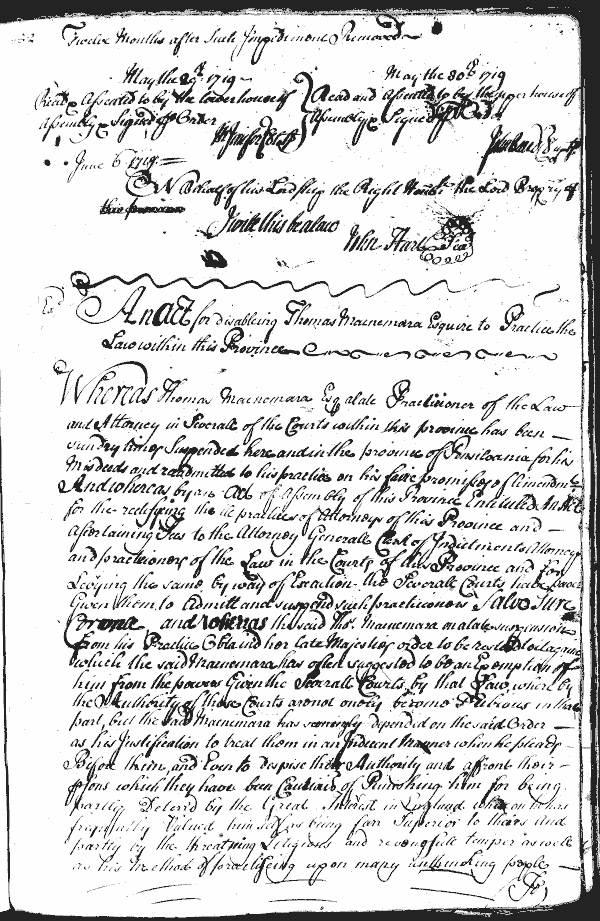 Twelve Months after Such Impediment Removed
May the 29th. 1719
May the 30th. 1719
Read & Assented to by the lower house of
Assembly & Signed p Order
Read and Assented to by the upper house of
Assembly & Signed p Order
June 6 1719
On Behalf of his Lordship the Right Honble the Lord Propry of
this province
I will this be a law
John Hart
An act for disableing Thomas Macnemara Esquire to Practice the
Law within this Province
Whereas Thomas Macnemara Esq a late Practitioner of the Law
and Attorney in Severale of the Courts within this province has been
sundry times Suspended here and in the province of Pensilvania for his
Misdeeds and readmitted to his practice on his faire promises of Amendmt
And whereas by an Act of Assembly of this Province Entituled An Act
for the rectifying the ill practices of Attorneys of this Province and
ascertaining Fees to the Attorney Generall Clerk of Indictments Attorneys
and practitioners of the Law in the Courts of this Province and for
Levying the same by way of Execution the Severall Courts have power
Given them to admitt and suspend such practitioners Salvo Jure
Coronæ and whereas the said Thos. Macnemara on a late suspension
from his Practice Obtaind her late Majesties order to be restored again
which the said Macnemara has often suggested to be an Exemption of
him from the powers Given the Severall Courts by that Law whereby
the Authority of those Courts are not onely become Dubious in that
part, but the said Macnemara has seemingly depended on the said Order
as his Justification to treat them in an Indecent Manner when he pleads
Before them, and Even to despise their Authority and affront their
psons which they have been Cautious of Punishing him for being
partly Deterrd by the Great Interest in England which he has
frequently Valued himself as being far Superior to theirs and
partly by the threatning Litigious and revengfull temper as well
as his Method of practiseing upon many unthinking people